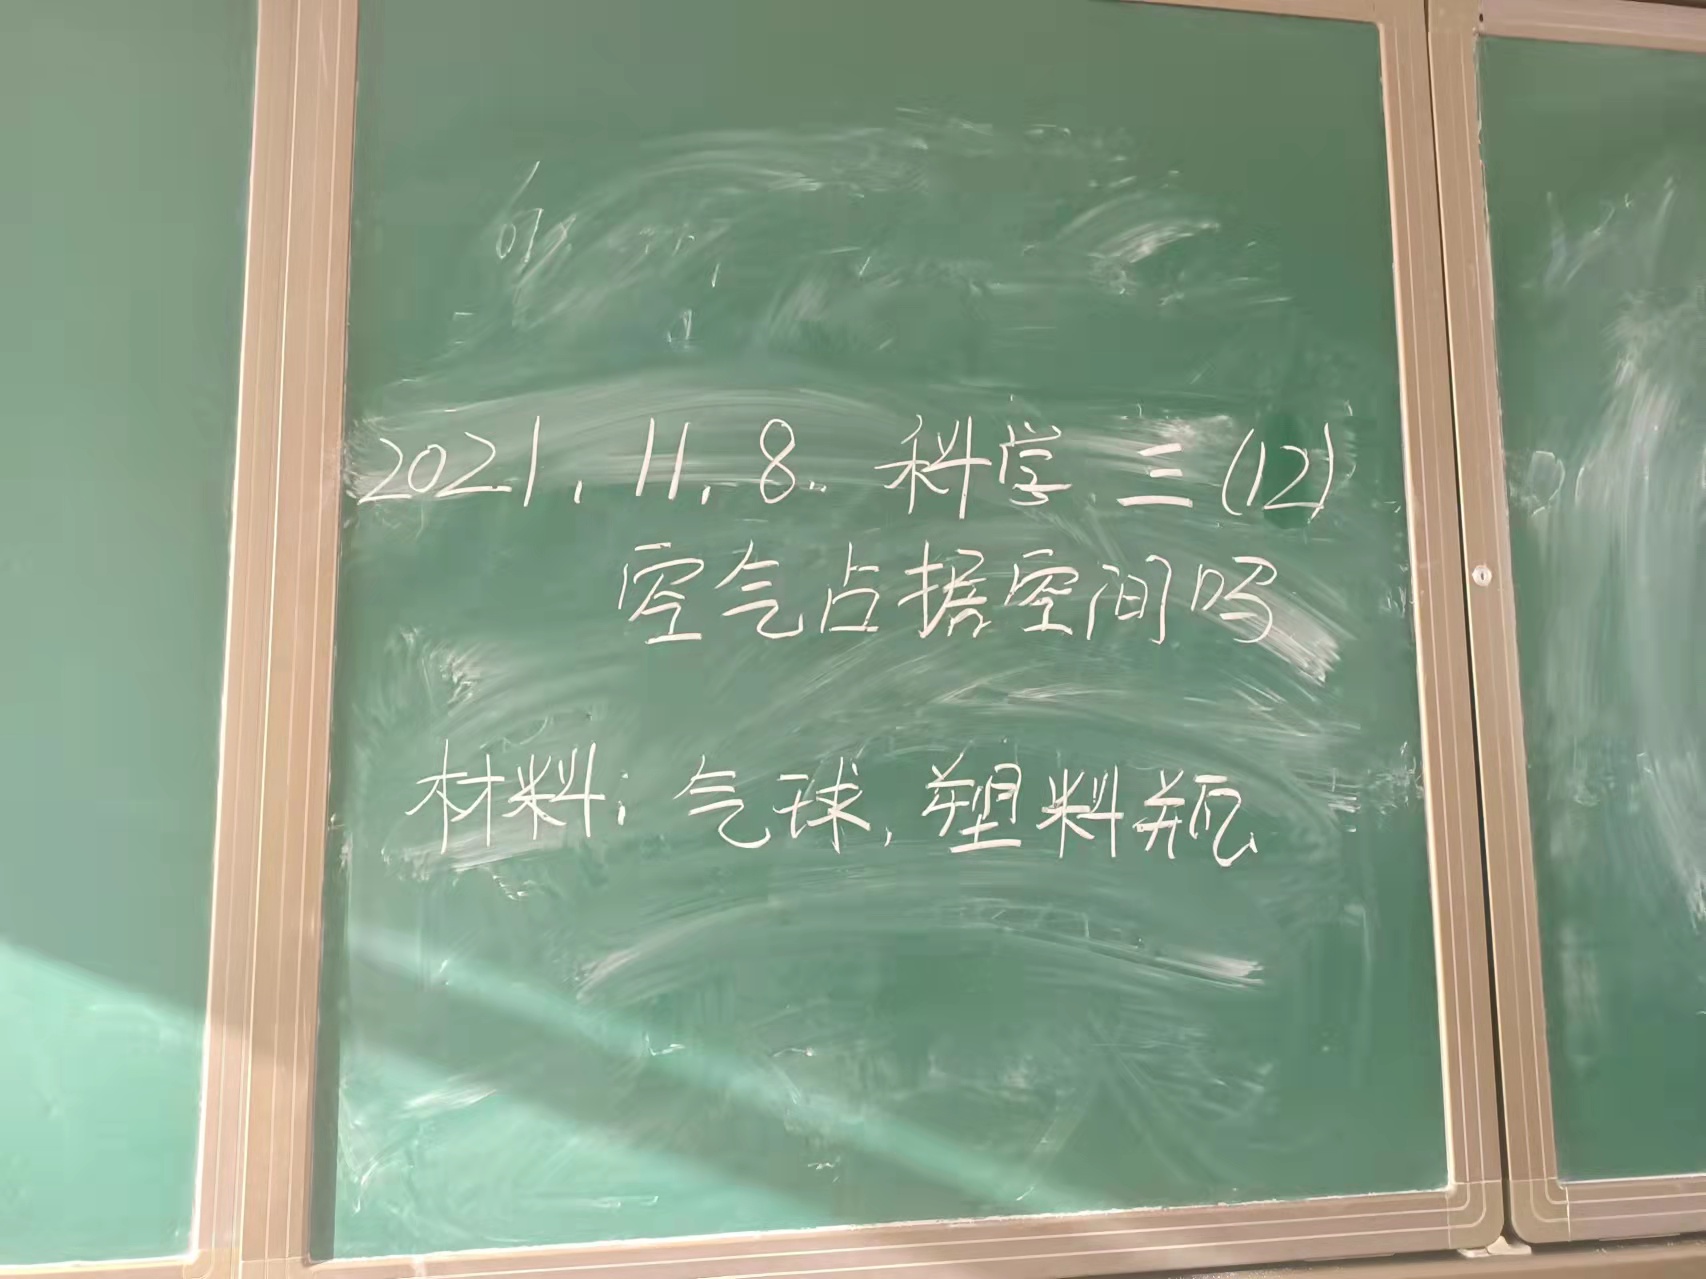 2021.11.8. 科学 三(12)
空气占据空间吗
材料:气球,塑料瓶